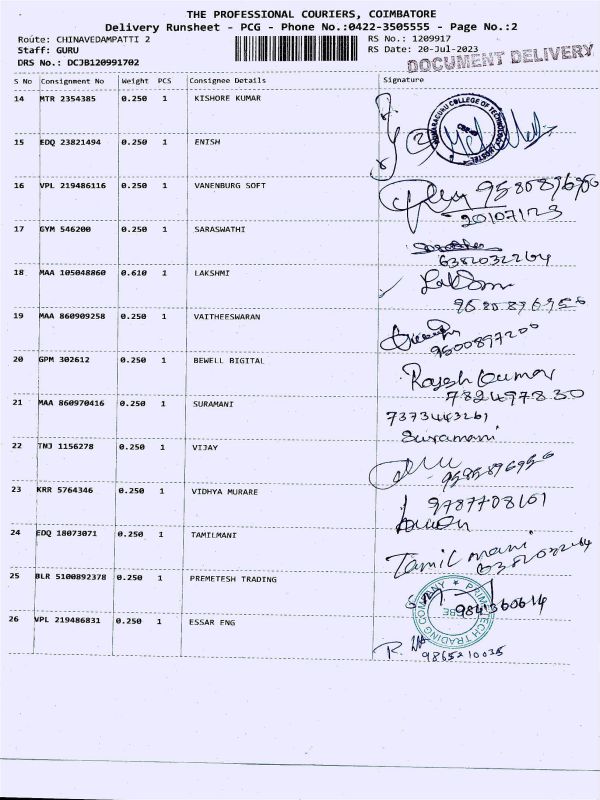 THE PROFESSIONAL COURIERS, COIMBATORE
Delivery Runsheet - PCG - Phone No.:0422-3505555 - Page No.:2
Route: CHINAVEDAMPATTI 2 RS No.: 1209917
Staff: GURU RS Date: 20-Jul-2023
DRS No.: DCJB120991702 DOCUMENT DELIVERY
S No Consignment No Weight PCS Consignee Details Signature
14 MTR 2354385 0.250 1 KISHORE KUMAR
15 EDQ 23821494 0.250 1 ENISH
16 VPL 219486116 0.250 1 VANENBURG SOFT 9580896956
20107123
17 GYM 546200 0.250 1 SARASWATHI
6382032264
18 MAA 105048860 0.610 1 LAKSHMI
9580896956
19 MAA 860909258 0.250 1 VAITHEESWARAN
9500897200
20 GPM 302612 0.250 1 BEWELL BIGITAL Rajesh Kumar
7824977830
21 MAA 860970416 0.250 1 SURAMANI 7373443261
Suramani
22 TNJ 1156278 0.250 1 VIJAY
9595896956
23 KRR 5764346 0.250 1 VIDHYA MURARE 9787708161
24 EDQ 18073071 0.250 1 TAMILMANI Tamil mani
6382032264
25 BLR 5100892378 0.250 1 PREMETESH TRADING
26 VPL 219486831 0.250 1 ESSAR ENG
9865210035